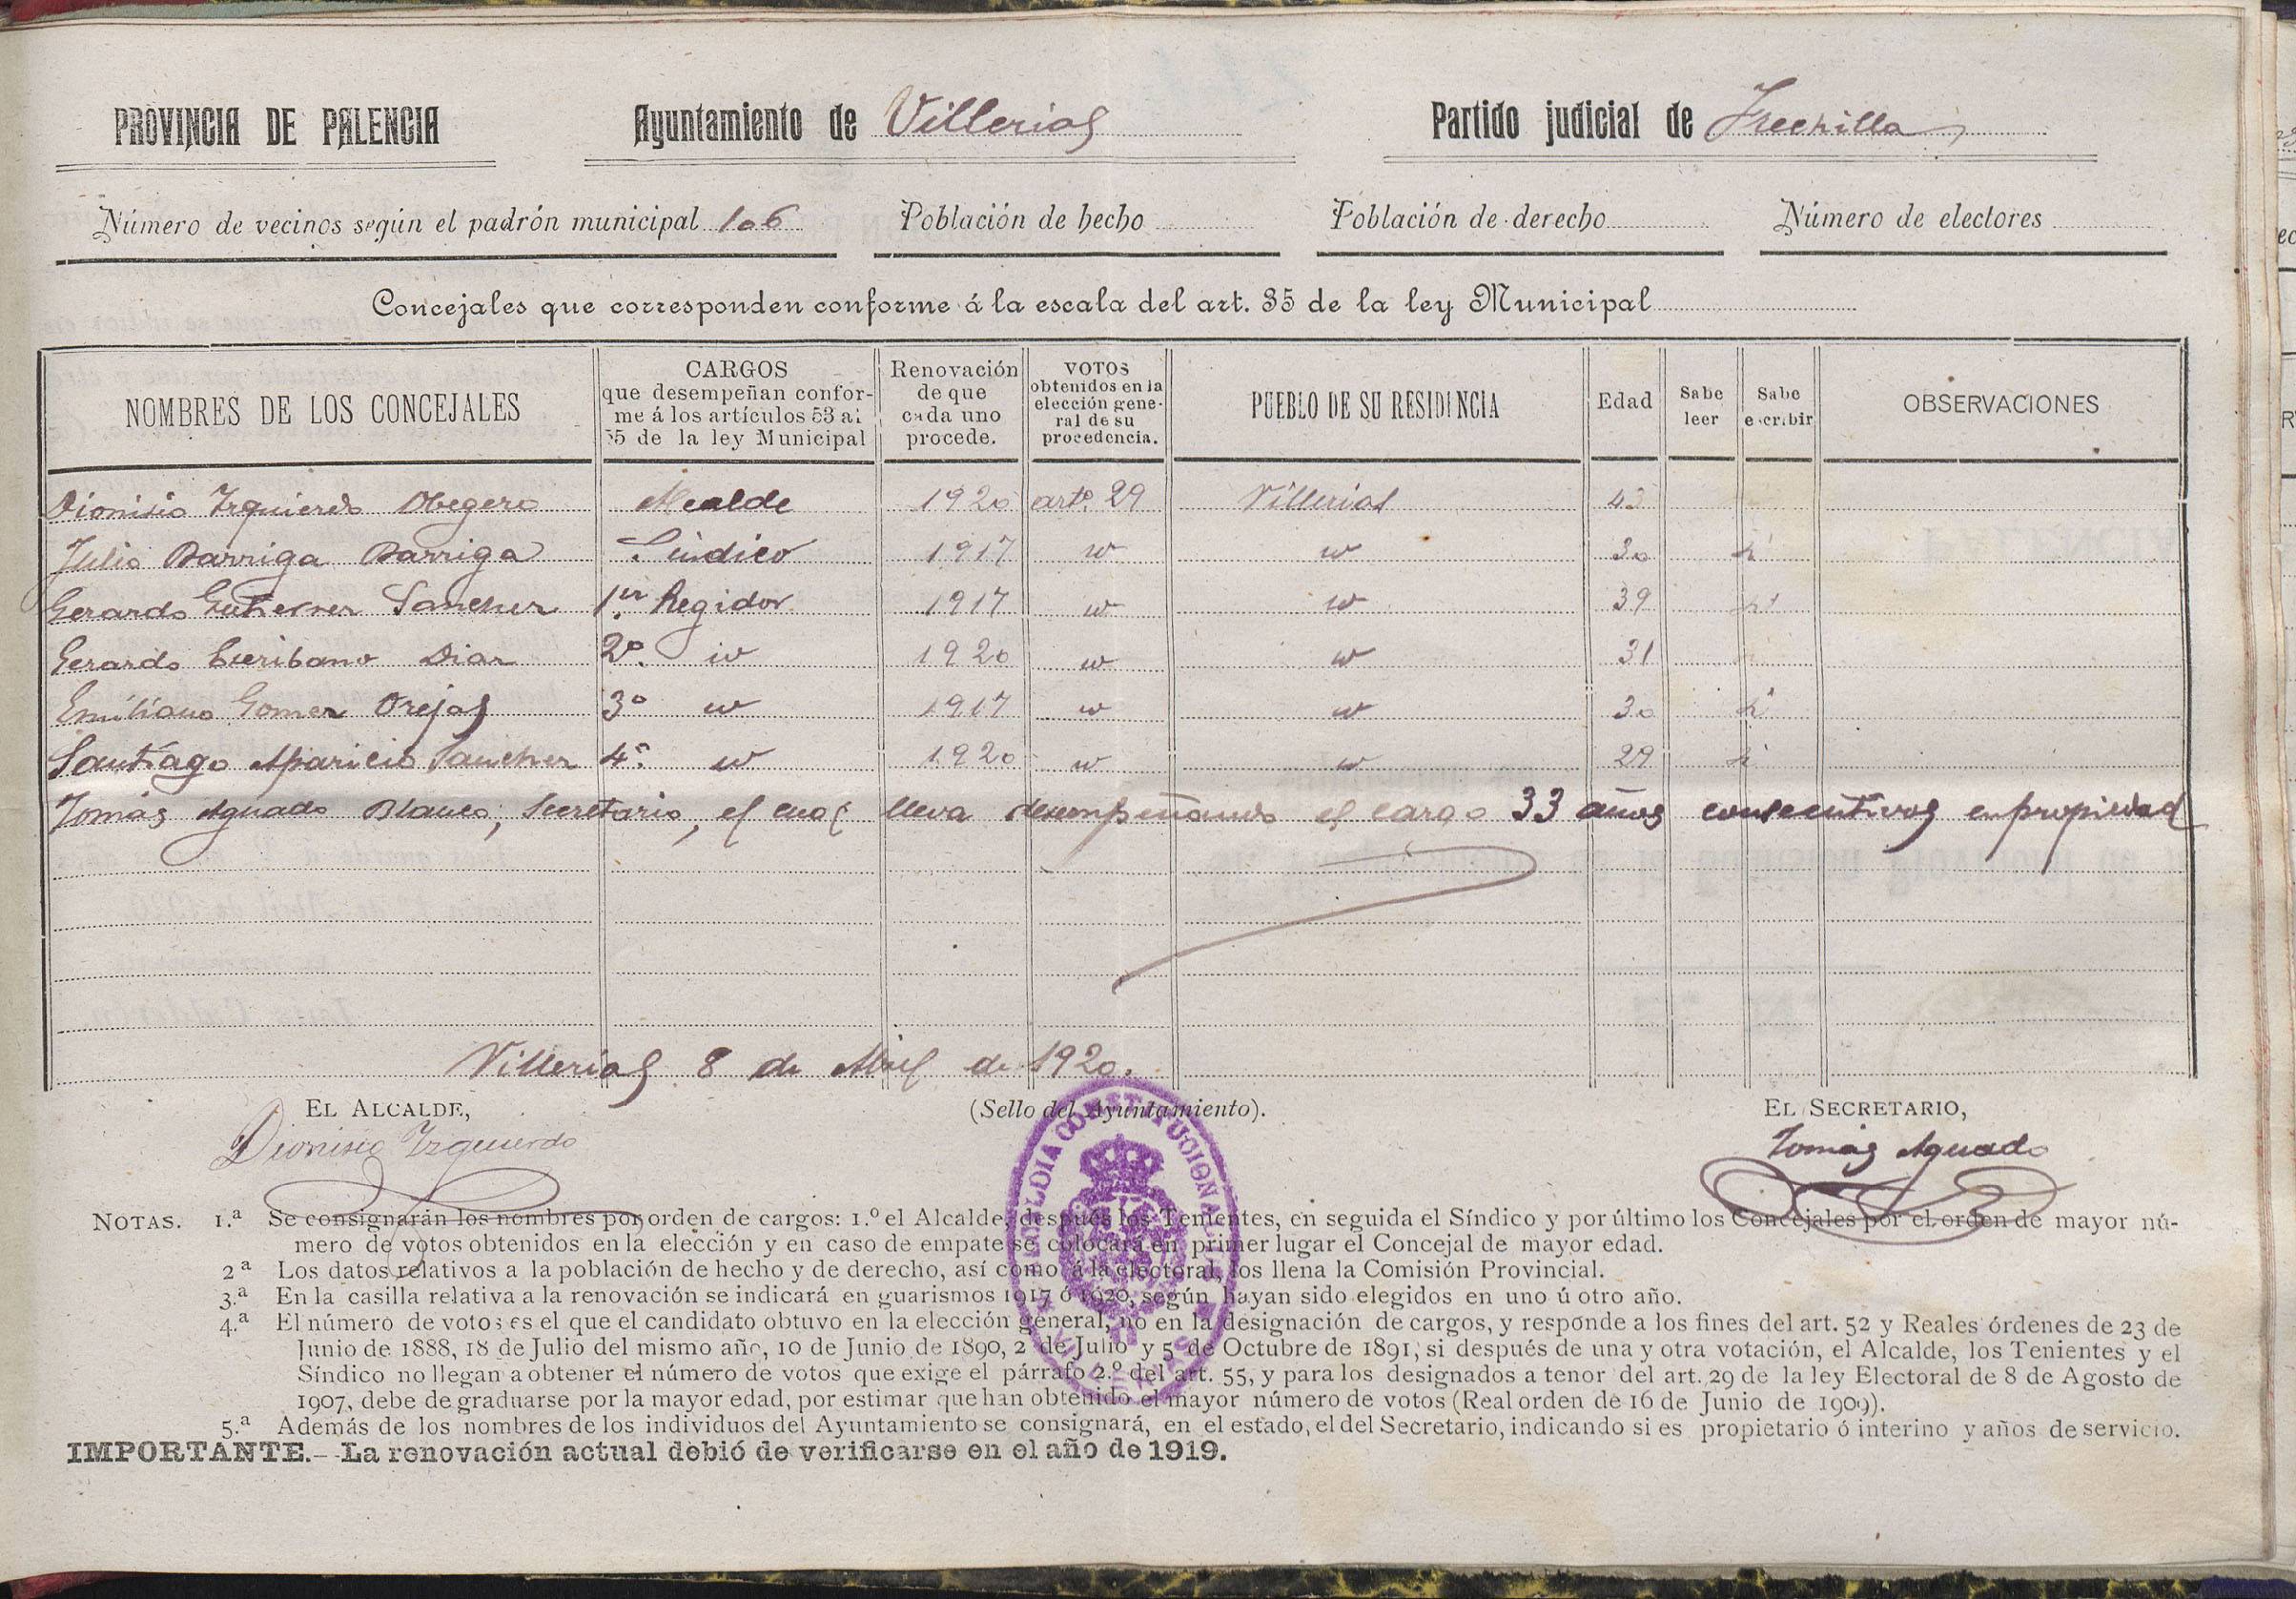 PROVINCIA DE PALENCIA Ayuntamiento de Villerias Partido judicial de Frechilla
Número de vecinos según el padrón municipal 106 Población de hecho Población de derecho Número de electores
Concejales que corresponden conforme á la escala del art. 35 de la ley Municipal
NOMBRES DE LOS CONCEJALES
CARGOS
que desempeñan confor-
me á los artículos 53 al
55 de la ley Municipal
Renovación
de que
cada uno
procede.
VOTOS
obtenidos en la
elección gene-
ral de su
procedencia.
PUEBLO DE SU RESIDENCIA
Edad
Sabe
leer
Sabe
escribir
OBSERVACIONES
Dionisio Izquierdo Obegero Alcalde 1920 artº 29 Villerias 43
Julio Barriga Barriga Síndico 1917 id id 30 si
Gerardo Gutierrez Sanchez 1er Regidor 1917 id id 39 si
Gerardo Escribano Diaz 2º id 1920 id id 31
Emiliano Gomez Orejas 3º id 1917 id id 30 si
Santiago Aparicio Sanchez 4º id 1920 id id 29 si
Tomás Aguado Blanco, Secretario, el cual lleva desempeñando el cargo 33 años consecutivos en propiedad
Villerias 8 de Abril de 1920.
EL ALCALDE, (Sello del Ayuntamiento). EL SECRETARIO,
Dionisio Izquierdo Tomás Aguado
ALCALDIA CONSTITUCIONAL
NOTAS. 1.ª Se consignarán los nombres por orden de cargos: 1.º el Alcalde, después los Tenientes, en seguida el Síndico y por último los Concejales por el orden de mayor nú-
mero de votos obtenidos en la elección y en caso de empate se colocará en primer lugar el Concejal de mayor edad.
2ª Los datos relativos a la población de hecho y de derecho, así como á la electoral, los llena la Comisión Provincial.
3.ª En la casilla relativa a la renovación se indicará en guarismos 1917 ó 1920, según hayan sido elegidos en uno ú otro año.
4.ª El número de votos es el que el candidato obtuvo en la elección general, no en la designación de cargos, y responde a los fines del art. 52 y Reales órdenes de 23 de
Junio de 1888, 18 de Julio del mismo año, 10 de Junio de 1890, 2 de Julio y 5 de Octubre de 1891, si después de una y otra votación, el Alcalde, los Tenientes y el
Síndico no llegan a obtener el número de votos que exige el párrafo 2.º del art. 55, y para los designados a tenor del art. 29 de la ley Electoral de 8 de Agosto de
1907, debe de graduarse por la mayor edad, por estimar que han obtenido el mayor número de votos (Real orden de 16 de Junio de 1909).
5.ª Además de los nombres de los individuos del Ayuntamiento se consignará, en el estado, el del Secretario, indicando si es propietario ó interino y años de servicio.
IMPORTANTE.--La renovación actual debió de verificarse en el año de 1919.